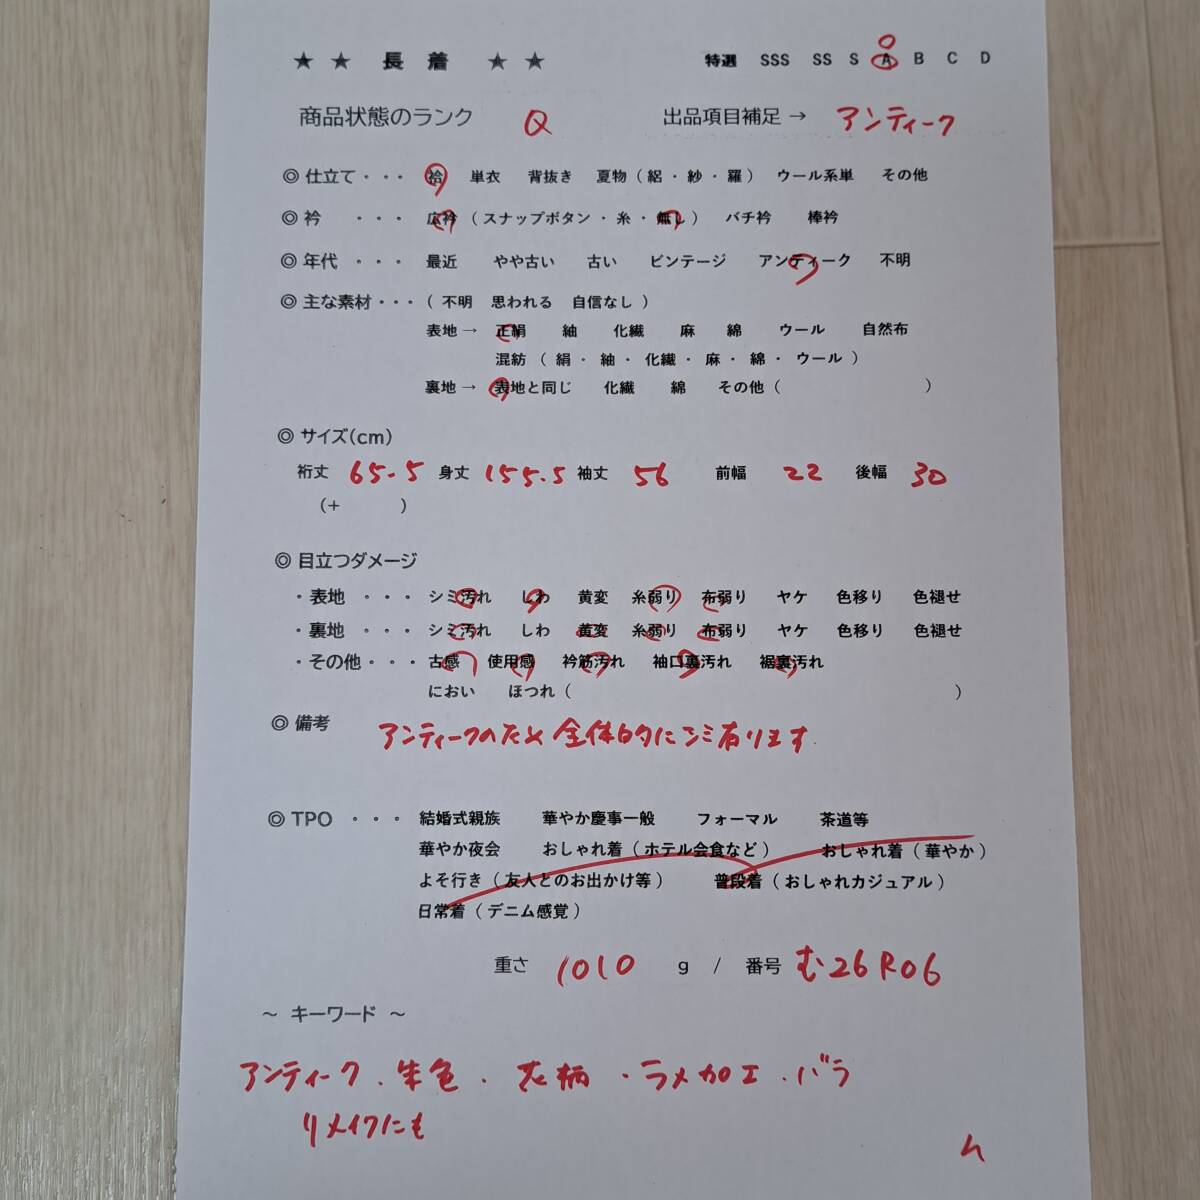 ★ ★ 長 着 ★ ★ 特選 SSS SS S A B C D
商品状態のランク Q 出品項目補足 → アンティーク
◎ 仕立て ・・・ 袷 単衣 背抜き 夏物（絽・紗・羅） ウール系単 その他
◎ 衿 ・・・ 広衿（スナップボタン・糸・無し） バチ衿 棒衿
◎ 年代 ・・・ 最近 やや古い 古い ビンテージ アンティーク 不明
◎ 主な素材・・・（不明 思われる 自信なし）
表地 → 正絹 紬 化繊 麻 綿 ウール 自然布
混紡（絹・紬・化繊・麻・綿・ウール）
裏地 → 表地と同じ 化繊 綿 その他（ ）
◎ サイズ(cm)
裄丈 65.5 身丈 155.5 袖丈 56 前幅 22 後幅 30
（+ ）
◎ 目立つダメージ
・表地 ・・・ シミ汚れ しわ 黄変 糸弱り 布弱り ヤケ 色移り 色褪せ
・裏地 ・・・ シミ汚れ しわ 黄変 糸弱り 布弱り ヤケ 色移り 色褪せ
・その他・・・ 古感 使用感 衿筋汚れ 袖口裏汚れ 裾裏汚れ
におい ほつれ（ ）
◎ 備考 アンティークのため全体的にシミ有ります
◎ TPO ・・・ 結婚式親族 華やか慶事一般 フォーマル 茶道等
華やか夜会 おしゃれ着（ホテル会食など） おしゃれ着（華やか）
よそ行き（友人とのお出かけ等） 普段着（おしゃれカジュアル）
日常着（デニム感覚）
重さ 1010 g / 番号 む26R06
～ キーワード ～
アンティーク．朱色．花柄．ラメ加工．バラ
リメイクにも